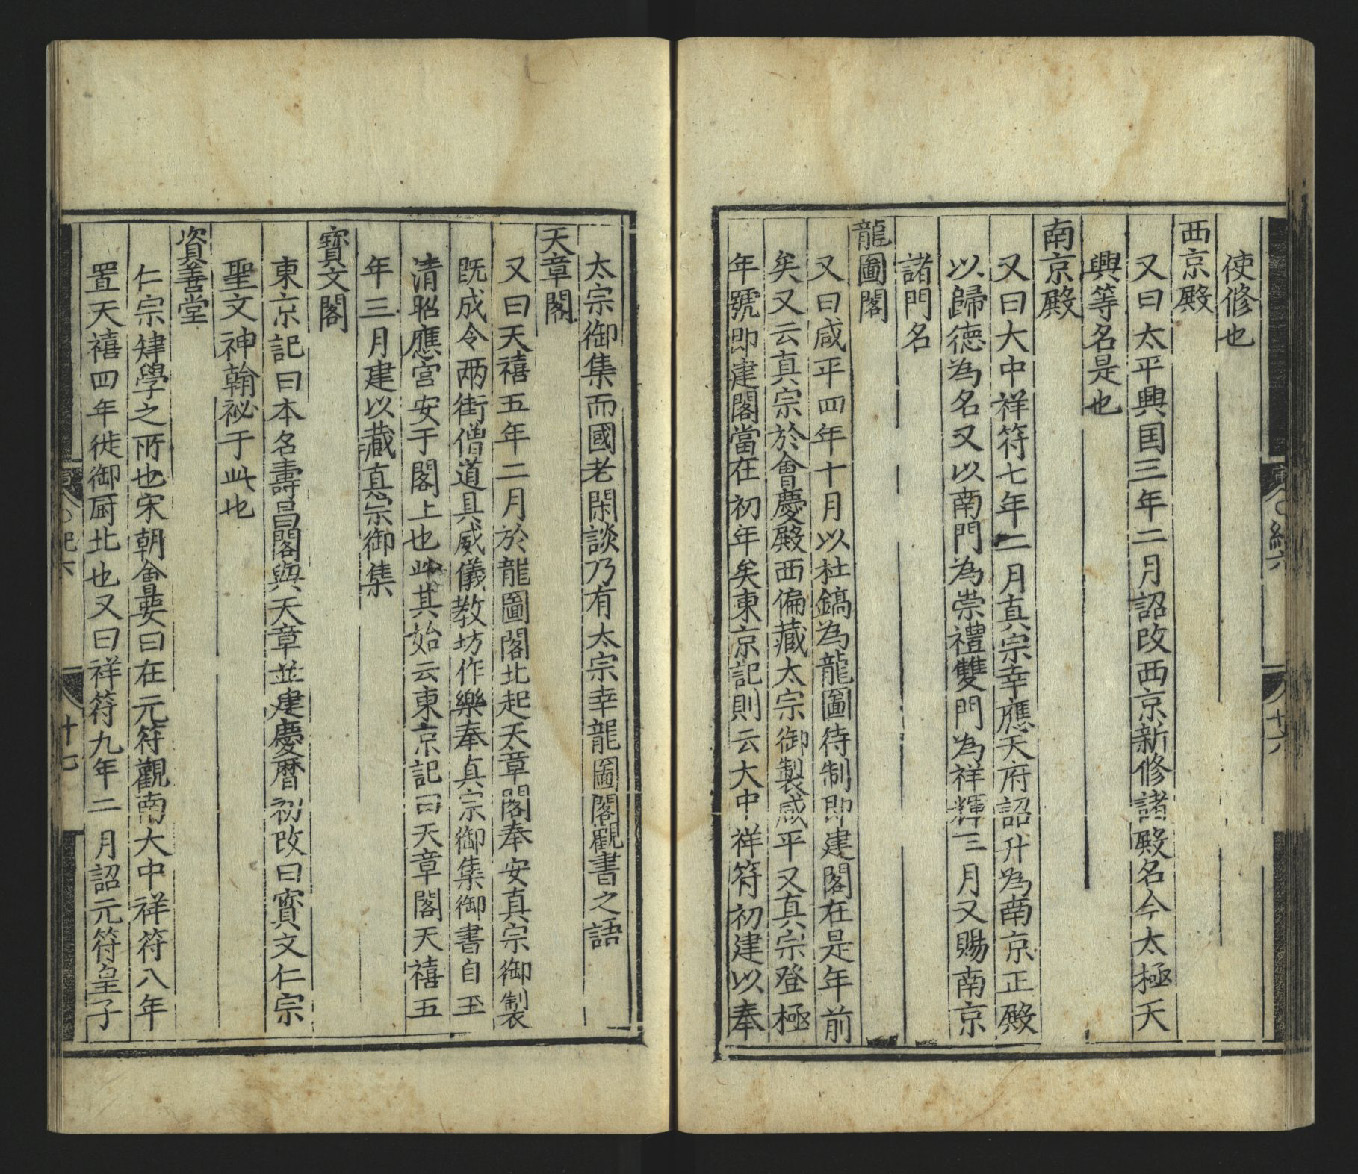 使修也
西京殿
又曰太平興国三年二月詔改西京新修諸殿名今太極天
興等名是也
南京殿
又曰大中祥符七年二月真宗幸應天府詔升為南京正殿
以歸德為名又以南門為崇禮雙門為祥輝三月又賜南京
諸門名
龍圖閣
又曰咸平四年十月以杜鎬為龍圖待制即建閣在是年前
矣又云真宗於會慶殿西偏藏太宗御製咸平又真宗登極
年號即建閣當在初年矣東京記則云大中祥符初建以奉
太宗御集而國老閑談乃有太宗幸龍圖閣觀書之語
天章閣
又曰天禧五年二月於龍圖閣北起天章閣奉安真宗御製
既成令兩街僧道具威儀教坊作樂奉真宗御集御書自玉
清昭應宮安于閣上也此其始云東京記曰天章閣天禧五
年三月建以藏真宗御集
寶文閣
東京記曰本名壽昌閣與天章並建慶曆初改曰寶文仁宗
聖文神翰祕于此也
資善堂
仁宗肄學之所也宋朝會要曰在元符觀南大中祥符八年
置天禧四年徙御厨北也又曰祥符九年二月詔元符皇子
十七